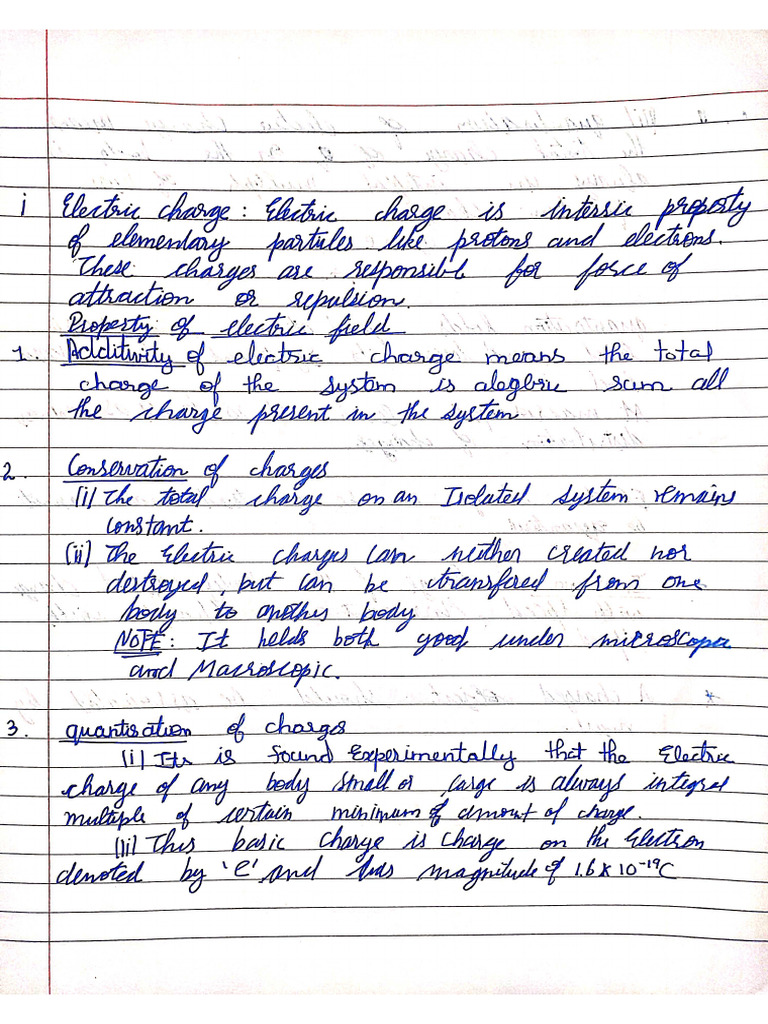 i Electric charge : Electric charge is intersic property
of elementary partules like protons and electrons.
These charges are responsibl for force of
attraction or repulsion.
Property of electric field
1. Additivity of electric charge means the total
charge of the system is alegbric sum all
the charge present in the system
2. Conservation of charges
(i) The total charge on an Isolated system remains
constant.
(ii) The Electric charges can neither created nor
destroyed, but can be transfered from one
body to another body
NOTE : It helds both good under microscopic
and Macroscopic.
3. quantisation of charges
(i) Its is found Experimentally that the Electric
charge of any body small or large is always integral
multiple of certain minimum of amount of charge.
(ii) This basic charge is charge on the Electron
denoted by 'e' and has magnitude of 1.6 x 10⁻¹⁹C